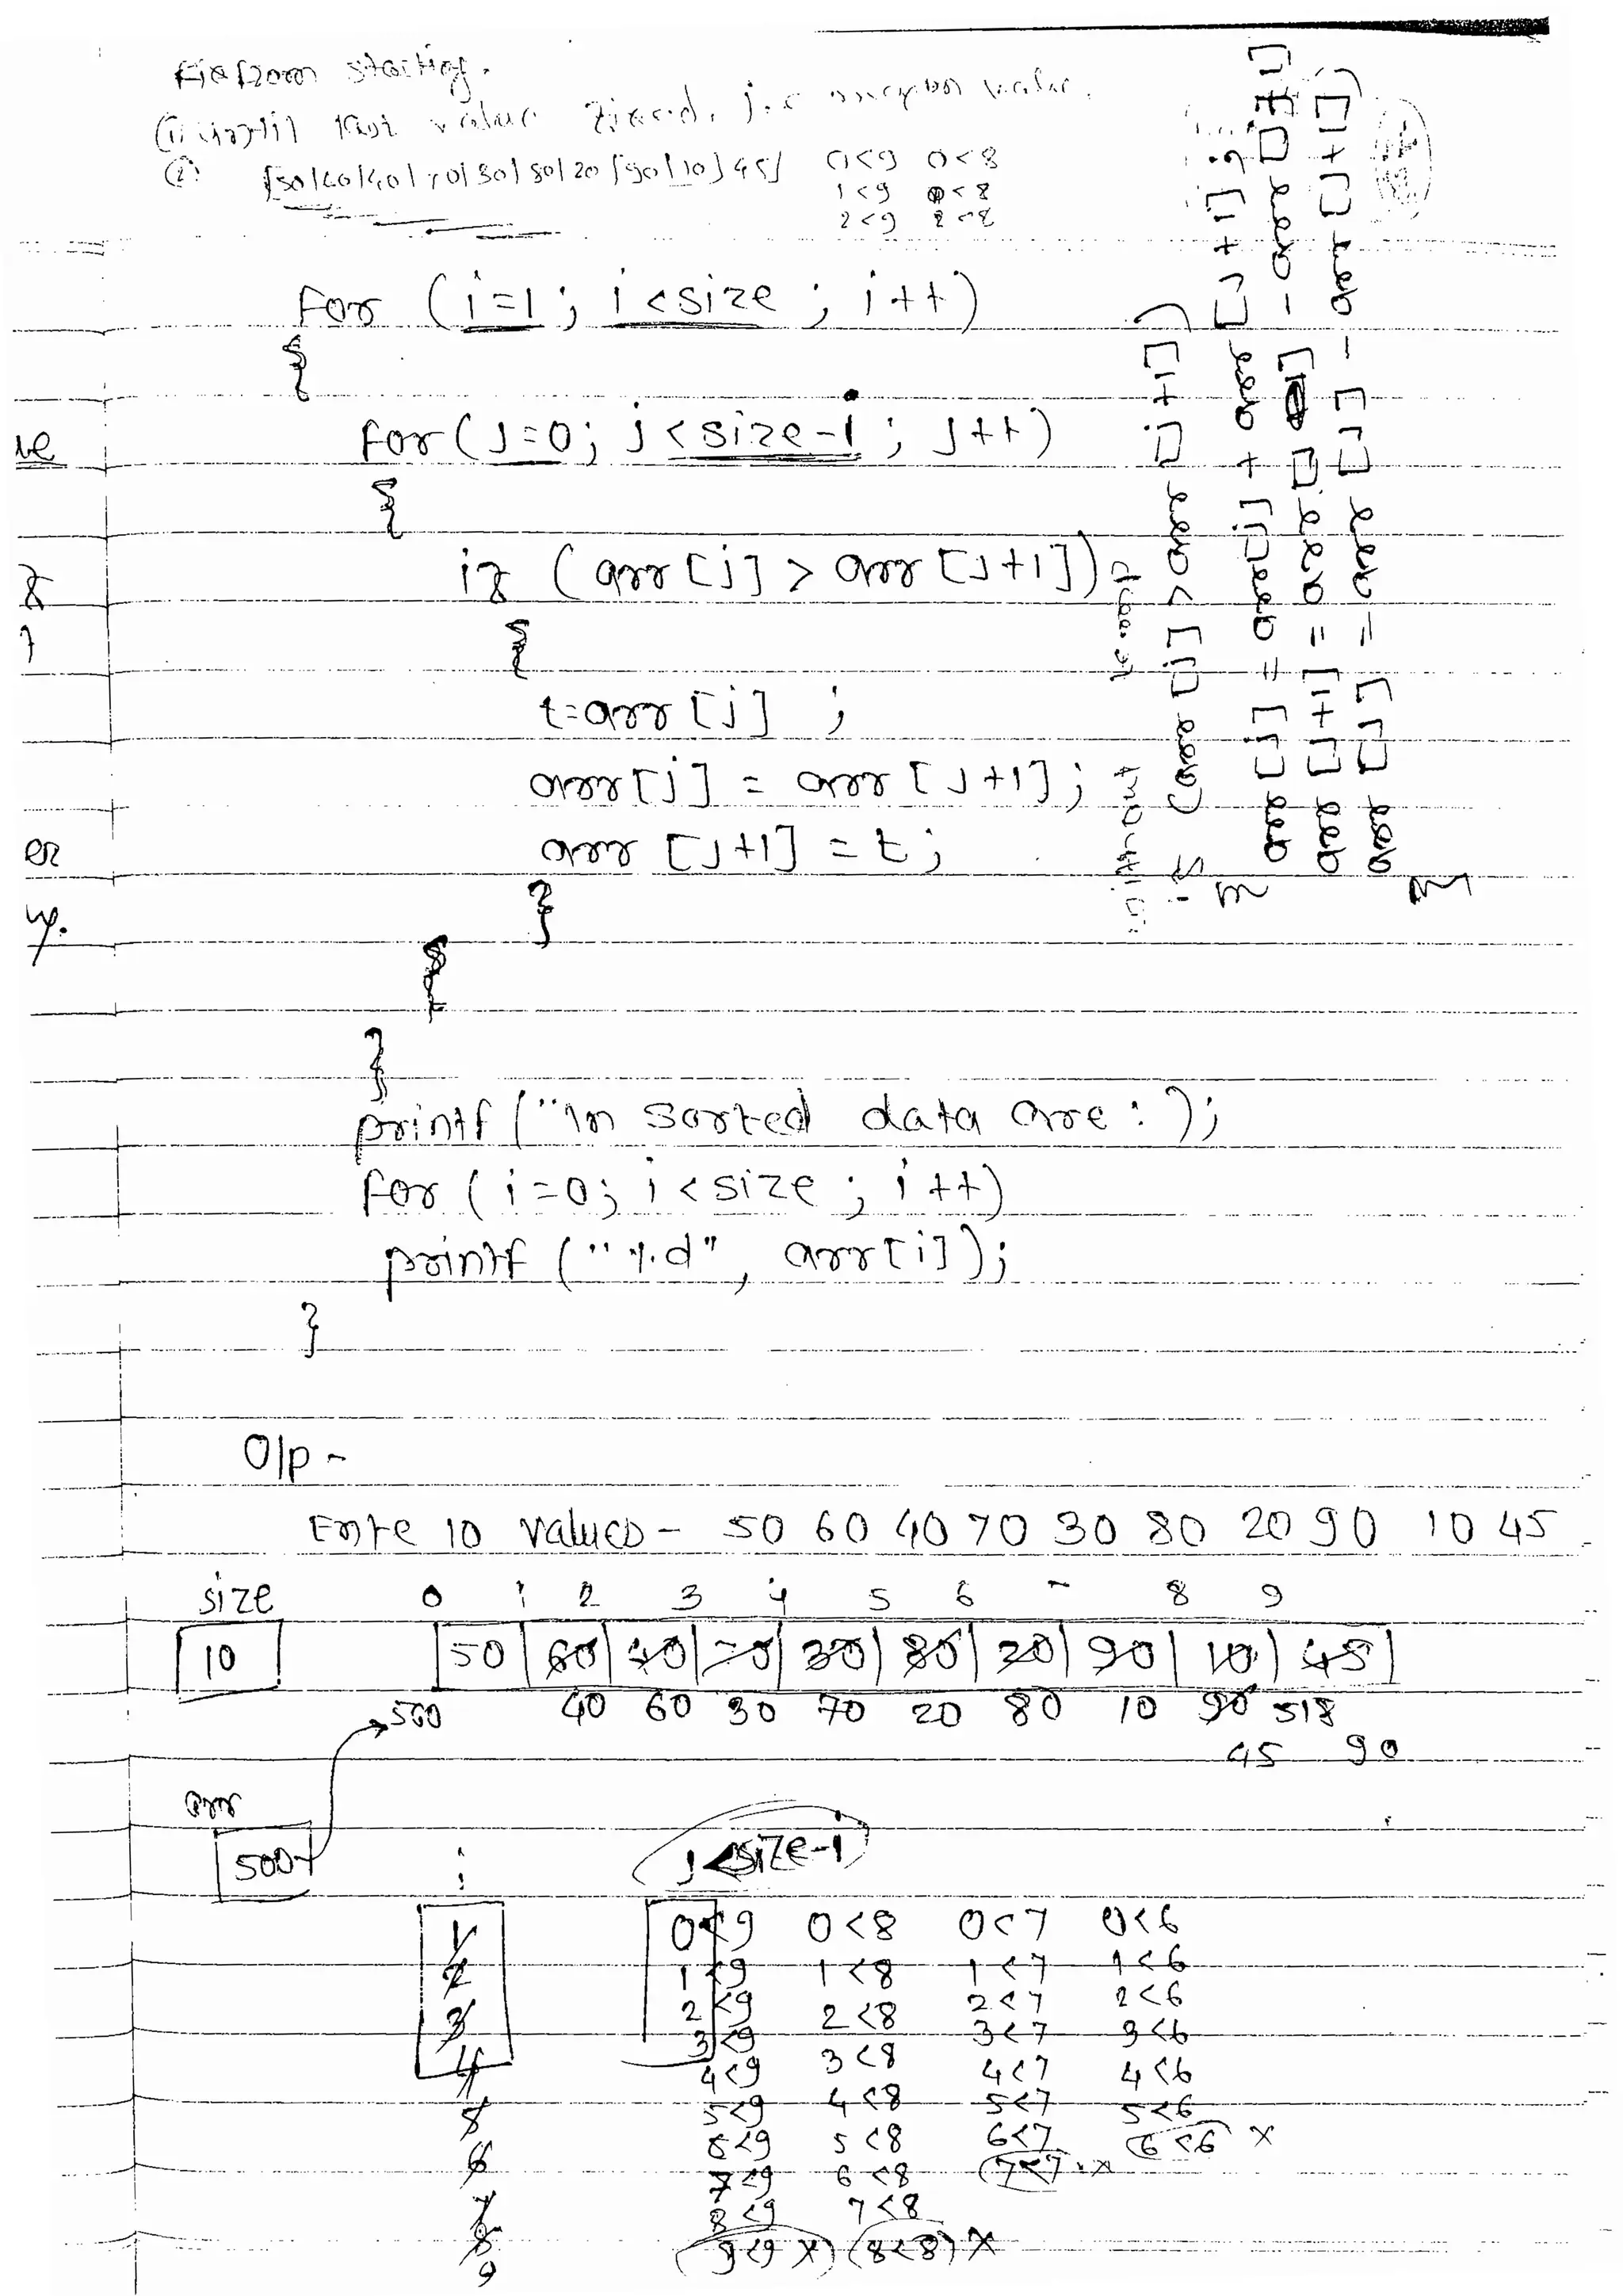 starting.
(i) last value fixed, j
(2) |50|60|40|70|30|80|20|90|10|45| 0<9 0<8
1<9 1<8
2<9 2<8
for (i=1; i<size; i++)
{
for(j=0; j<size-i; j++)
{
if (arr[j] > arr[j+1])
{
t=arr[j] ;
arr[j] = arr[j+1];
arr[j+1] = t;
}
}
}
printf("\n sorted data are: ");
for (i=0; i<size; i++)
printf ("%d", arr[i]);
}
without
if (arr[j]>arr[j+1])
{
arr[j] = arr[j] + arr[j+1];
arr[j+1] = arr[j] - arr[j+1]
arr[j] = arr[j] - arr[j+1];
}
O/p -
Ente 10 values - 50 60 40 70 30 80 20 90 10 45
size 0 1 2 3 4 5 6 8 9
10 |50|60|40|70|30|80|20|90|10|45|
500 40 60 30 70 20 80 10 90 518
45 90
arr
500
i j<size-i
1 0<9 0<8 0<7 0<6
2 1<9 1<8 1<7 1<6
3 2<9 2<8 2<7 2<6
4 3<9 3<8 3<7 3<6
4<9 4<8 4<7 4<6
5 5<9 5<8 5<7 5<6
6 6<9 6<8 6<7 (6<6 x
7 7<9 7<8 (7<7 x
8 8<9 (8<8) x
9 (9<9 x)